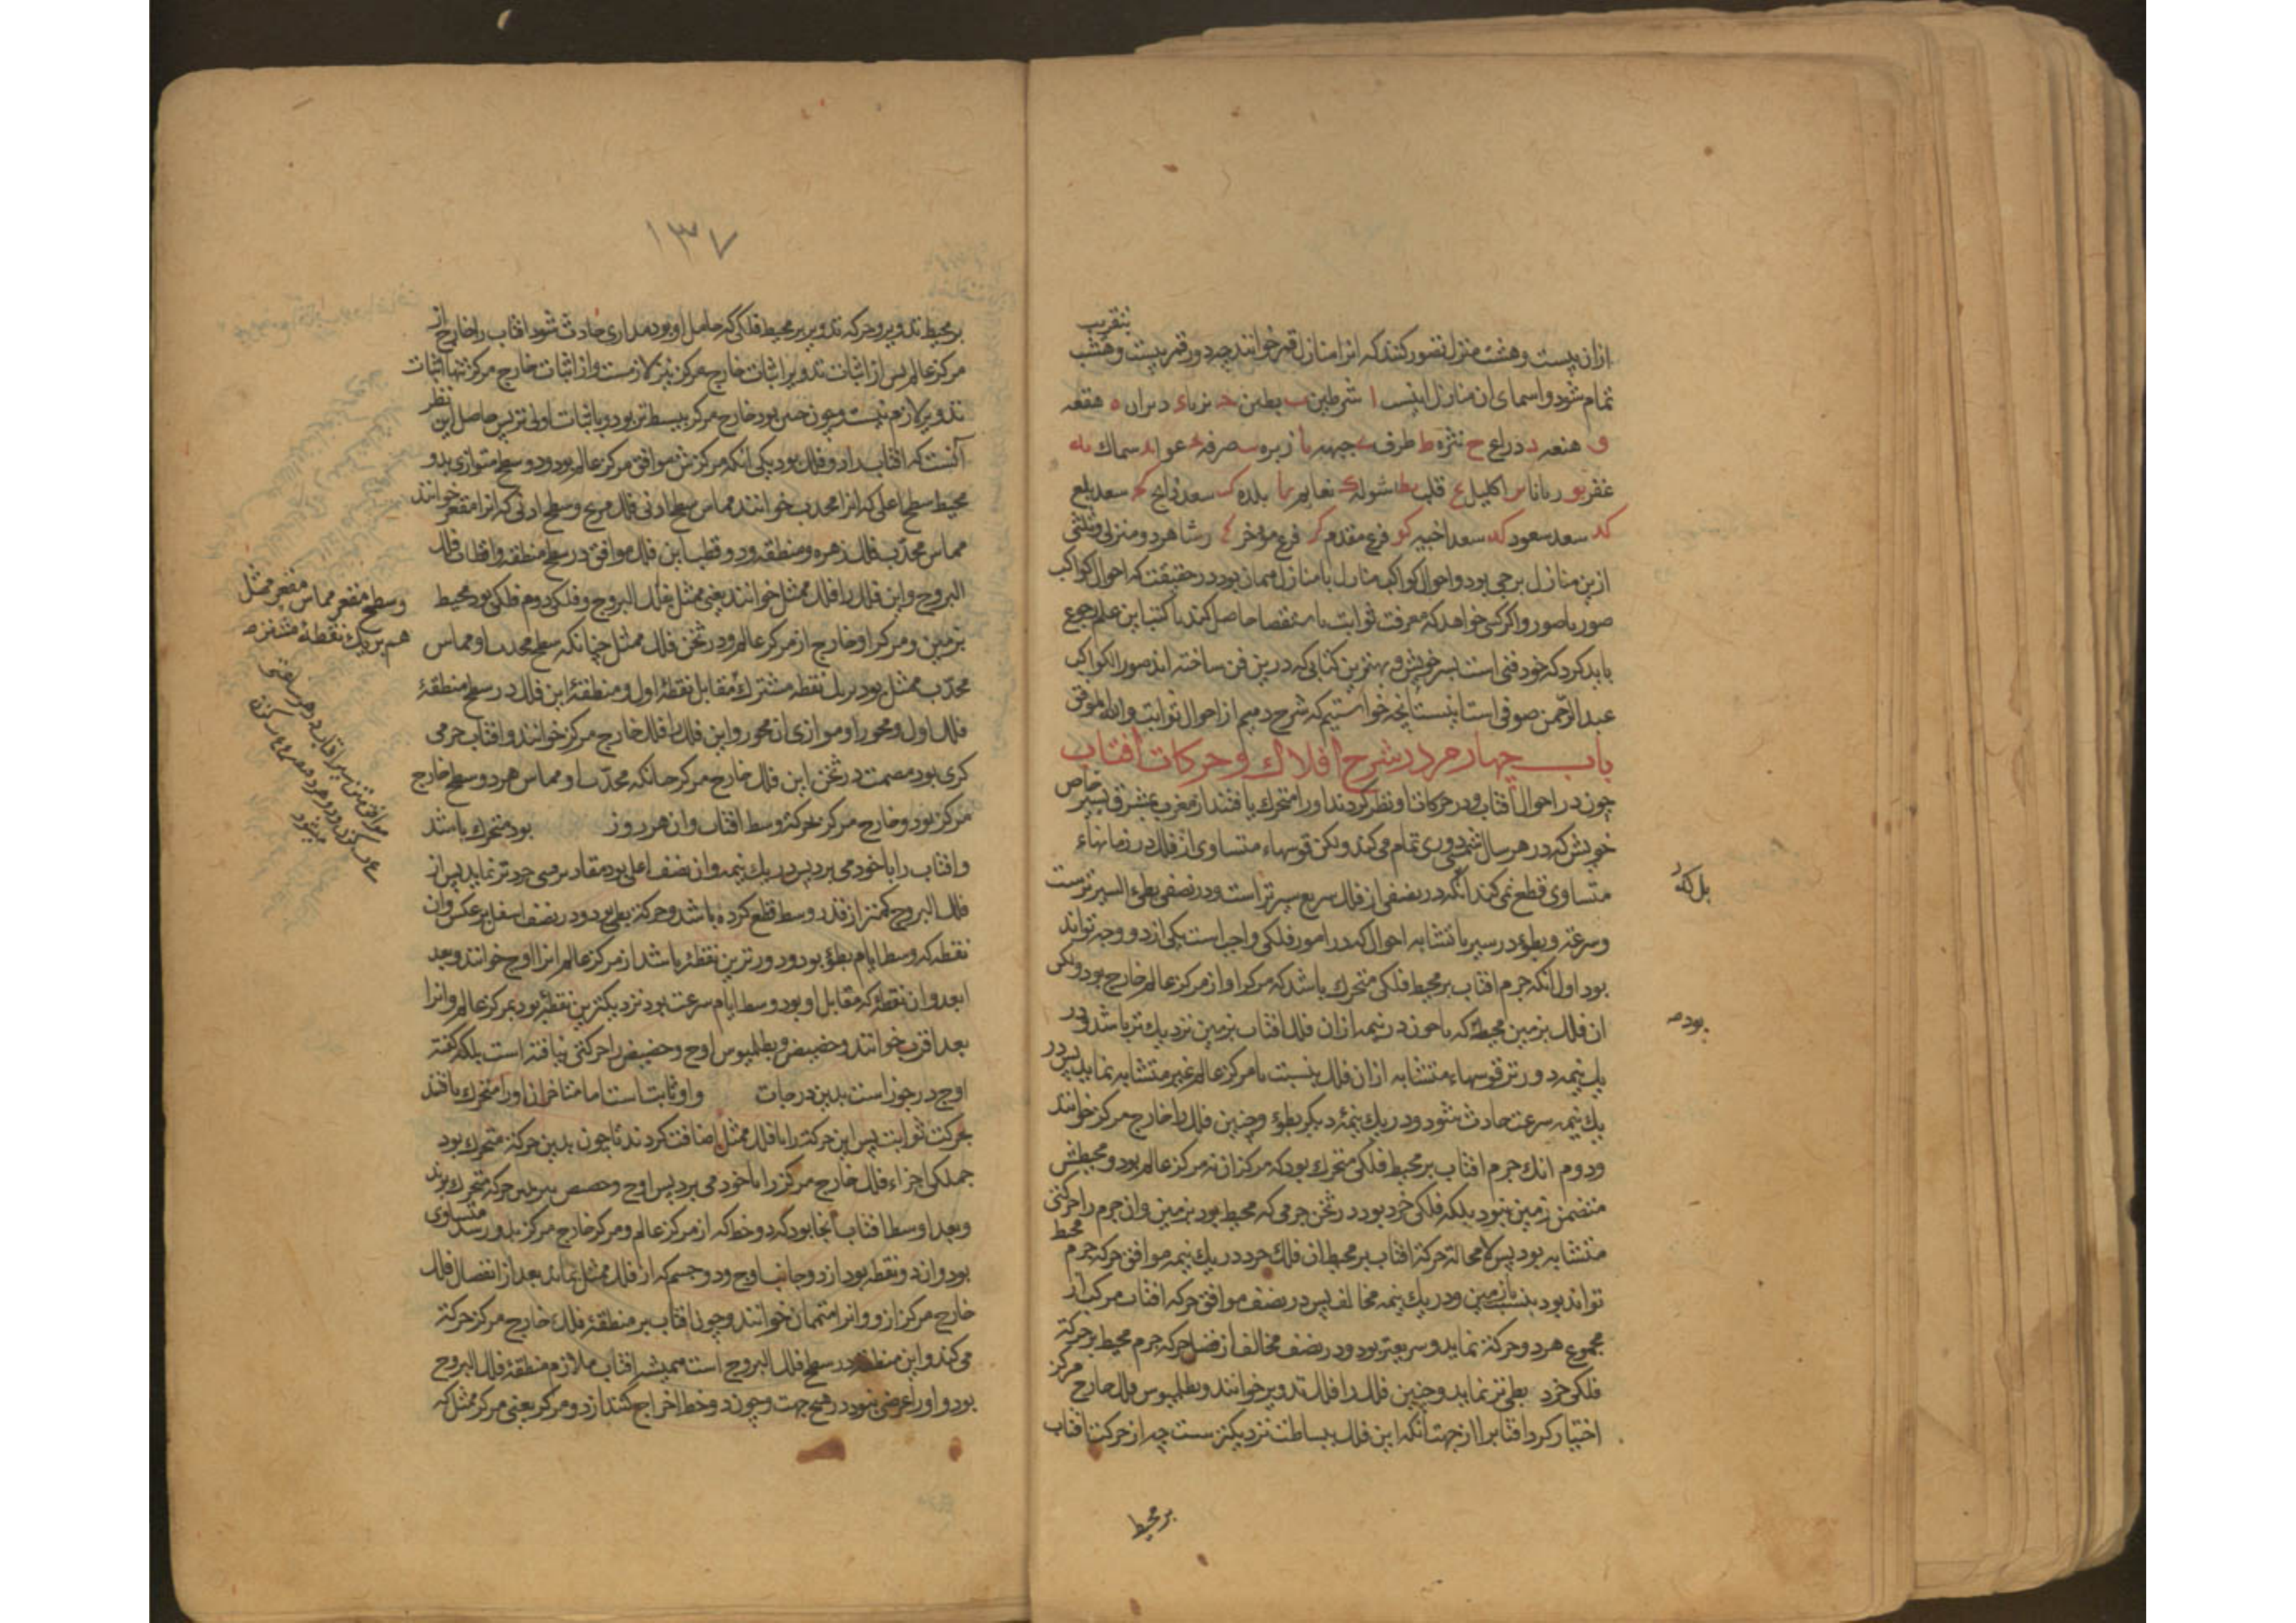 از آن بیست و هشت منزل تصور کنند که انرا منازل قمر خوانند چه دور قمر ببیست و هشت
بتقریب
تمام شود و اسمای ان منازل اینست ا شرطین ب بطین ج ثریا د دبران ه هقعه
و هنعه ز ذراع ح نثره ط طرف ی جبهه یا زبره یب صرفه یج عوا ید سماك یه
غفر یو زبانا یز اکلیل یح قلب یط شوله ك نعایم کا بلده کب سعد ذابح کج سعد بلع
کد سعد سعود که سعد اخبیه کو فرغ مقدم کز فرغ مؤخر کح رشا هر دو منزل و ثلثی
ازین منازل برجی بود و احوال کواکب منازل با منازل همان بود در حقیقت که احوال کواکب
صور با صور و اکر کسی خواهد که معرفت ثوابت باستقصا حاصل کند با کتب این علم رجوع
باید کرد که خود فنی است بسر خویش و بهترین کتابی که درین فن ساخته اند صور الکواکب
عبد الرحمن صوفی است اینست آنچه خواستیم که شرح دهیم از احوال ثوابت و الله الموفق
باب چهارم در شرح افلاك و حرکات افتاب
چون در احوال آفتاب و در حرکات او نظر کردند او را متحرك یافتند از مغرب بمشرق بسیر خاص
خویش که در هر سال شمسی دوری تمام می کند ولکن قوسهاء متساوی از فلك در زمانهاء
متساوی قطع نمی کند انکه در نصفی از فلك سریع سیرتر است و در نصفی بطیء السیرترست
بل که
وسرعة و بطؤ در سیر با تشابه احوال که در امور فلکی واجب است یکی از دو وجه تواند
بود اول انکه جرم افتاب بر محیط فلکی متحرك باشد که مرکز او از مرکز عالم خارج بود ولکن
ان فلك بزمین محیط که تا چون در نیمه از ان فلك افتاب بزمین نزدیك تر باشد و در
بود صح
یك نیمه دورتر قوسهاء متشابه از ان فلك بنسبت با مرکز عالم غیر متشابه نماید پس در
یك نیمه سرعت حادث شود و در یك نیمۀ دیکر بطؤ و چنین فلك را خارج مرکز خوانند
و دوم انك جرم افتاب بر محیط فلکی متحرك بود که مرکز ان نه مرکز عالم بود و محیطش
متضمن زمین نبود بلکه فلکی خرد بود در ثخن جرمی که محیط بود بزمین و ان جرم را حرکتی
متشابه بود پس لا محالة حرکة افتاب بر محیط ان فلك خرد در یك نیمه موافق حرکة جرم محیط
تواند بود بنسبت با زمین و در یك نیمه مخالف پس در نصف موافق حرکة افتاب مرکب از
مجموع هر دو حرکة نماید و سریعتر بود و در نصف مخالف از فضل حرکة جرم محیط بر حرکة
فلکی خرد بطی تر نماید و چنین فلك را فلك تدویر خوانند و بطلمیوس فلك خارج مرکز
اختیار کرد افتاب را از جهت انکه این فلك ببساطت نزدیکترست چه از حرکت افتاب
بر محیط
۱۳۷
بر محیط تدویر و حرکة تدویر بر محیط فلکی که حامل او بود مداری حادث شود افتاب را خارج از
مرکز عالم پس از اثبات تدویر اثبات خارج مرکز نیز لازمست و از اثبات خارج مرکز تنها اثبات
تدویر لازم نیست و چون چنین بود خارج مرکز بسیط تر بود و باثبات اولی تر پس حاصل این نظر
آنست که افتاب را دو فلك بود یکی انکه مرکزش موافق مرکز عالم بود و دو سطح متوازی بدو
محیط سطح اعلی که انرا محدب خوانند مماس سطح ادنی فلك مریخ و سطح ادنی که انرا مقعر خوانند
مماس محدب فلك زهره و منطقه و دو قطب این فلك موافق در سطح منطقه و اقطاب فلك
البروج و این فلك را فلك ممثل خوانند یعنی ممثل بفلك البروج و فلکی دوم فلکی بود محیط
بزمین و مرکز او خارج از مرکز عالم و در ثخن فلك ممثل چنانکه سطح محدب او مماس
وسطح مقعر مماس مقعر ممثل
هم بر یك نقطۀ مشترك صح
محدب ممثل بود بر یك نقطه مشترك مقابل نقطۀ اول و منطقۀ این فلك در سطح منطقۀ
فلك اول و محور او موازی ان محور و این فلك را فلك خارج مرکز خوانند و افتاب جرمی
کری بود مصمت در ثخن این فلك خارج مرکز چنانکه محدب او مماس هر دو سطح خارج
مرکز بود و خارج مرکز بحرکة وسط افتاب و ان هر روز بود متحرك باشد
و افتاب را با خود می برد پس در یك نیمه و ان نصف اعلی بود مقادیر مسیر خردتر نماید پس از
فلك البروج کمتر از قدر وسط قطع کرده باشد و حرکة بطی بود و در نصف اسفل بر عکس و ان
نقطه که وسط ایام بطؤ بود و دورترین نقطۀ باشد از مرکز عالم انرا اوج خوانند و بعد
ابعد و ان نقطۀ که مقابل او بود وسط ایام سرعت بود نزدیکترین نقطۀ بود بمرکز عالم و انرا
بعد اقرب خوانند و حضیض و بطلمیوس اوج و حضیض را حرکتی نیافته است بلکه گفته
اوج در جوزا است بدین درجات و او ثابت است اما متاخران او را متحرك یافتند
بحرکت ثوابت پس این حرکة را با فلك ممثل اضافت کردند تا چون بدین حرکة متحرك بود
جملکی اجزاء فلك خارج مرکز را با خود می برد پس اوج و حضیض بدین حرکة متحرك بوند
و بعد اوسط افتاب انجا بود که دو خط که از مرکز عالم و مرکز خارج مرکز بدو رسد متساوی
بود و ان دو نقطه بود از دو جانب اوج و دو جسم که از فلك ممثل بماند بعد از انفصال فلك
خارج مرکز ازو و انرا متممان خوانند و چون افتاب بر منطقۀ فلك خارج مرکز حرکة
می کند و این منطقه در سطح فلك البروج است همیشه افتاب ملازم منطقۀ فلك البروج
بود و او را عرضی نبود در هیچ جهت و چون دو خط اخراج کنند از دو مرکز یعنی مرکز ممثل که